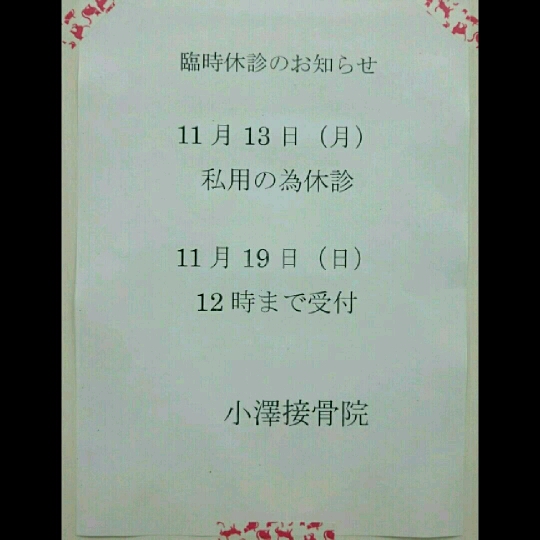 臨時休診のお知らせ
11月13日（月）
私用の為休診
11月19日（日）
12時まで受付
小澤接骨院